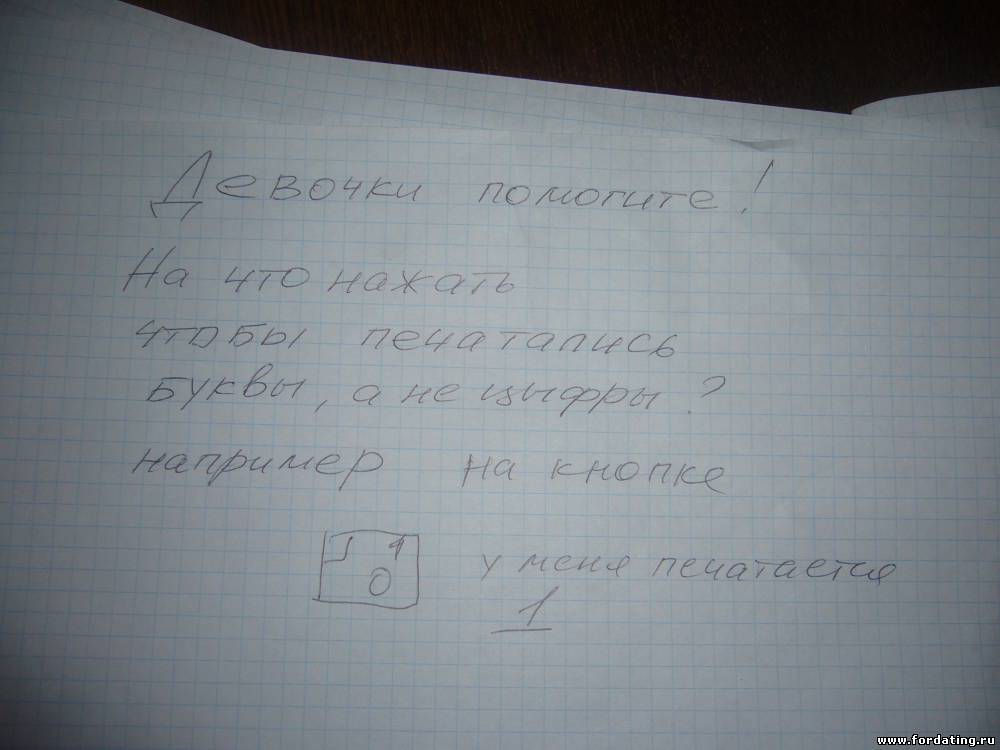 Девочки помогите!
На что нажать
чтобы печатались
буквы, а не цыфры?
например на кнопке
J 1
О
у меня печатается
1
www.fordating.ru